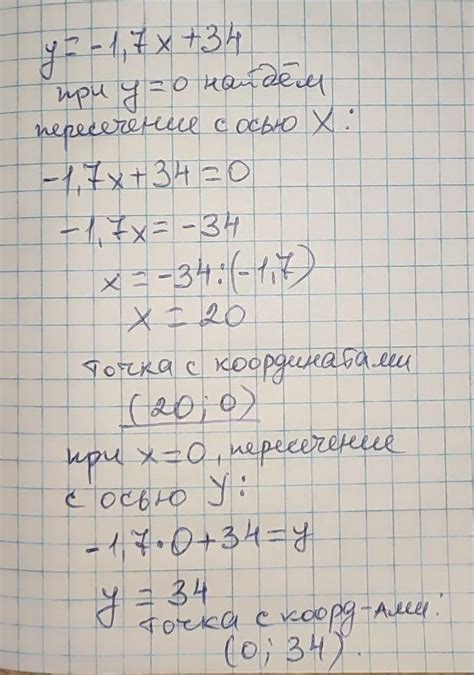 y = -1,7x + 34
при y = 0 найдём
пересечение с осью X:
-1,7x + 34 = 0
-1,7x = -34
x = -34:(-1,7)
x = 20
точка с координатами
(20; 0)
при x = 0, пересечение
с осью У:
-1,7·0 + 34 = y
y = 34
точка с коорд-ами:
(0; 34).